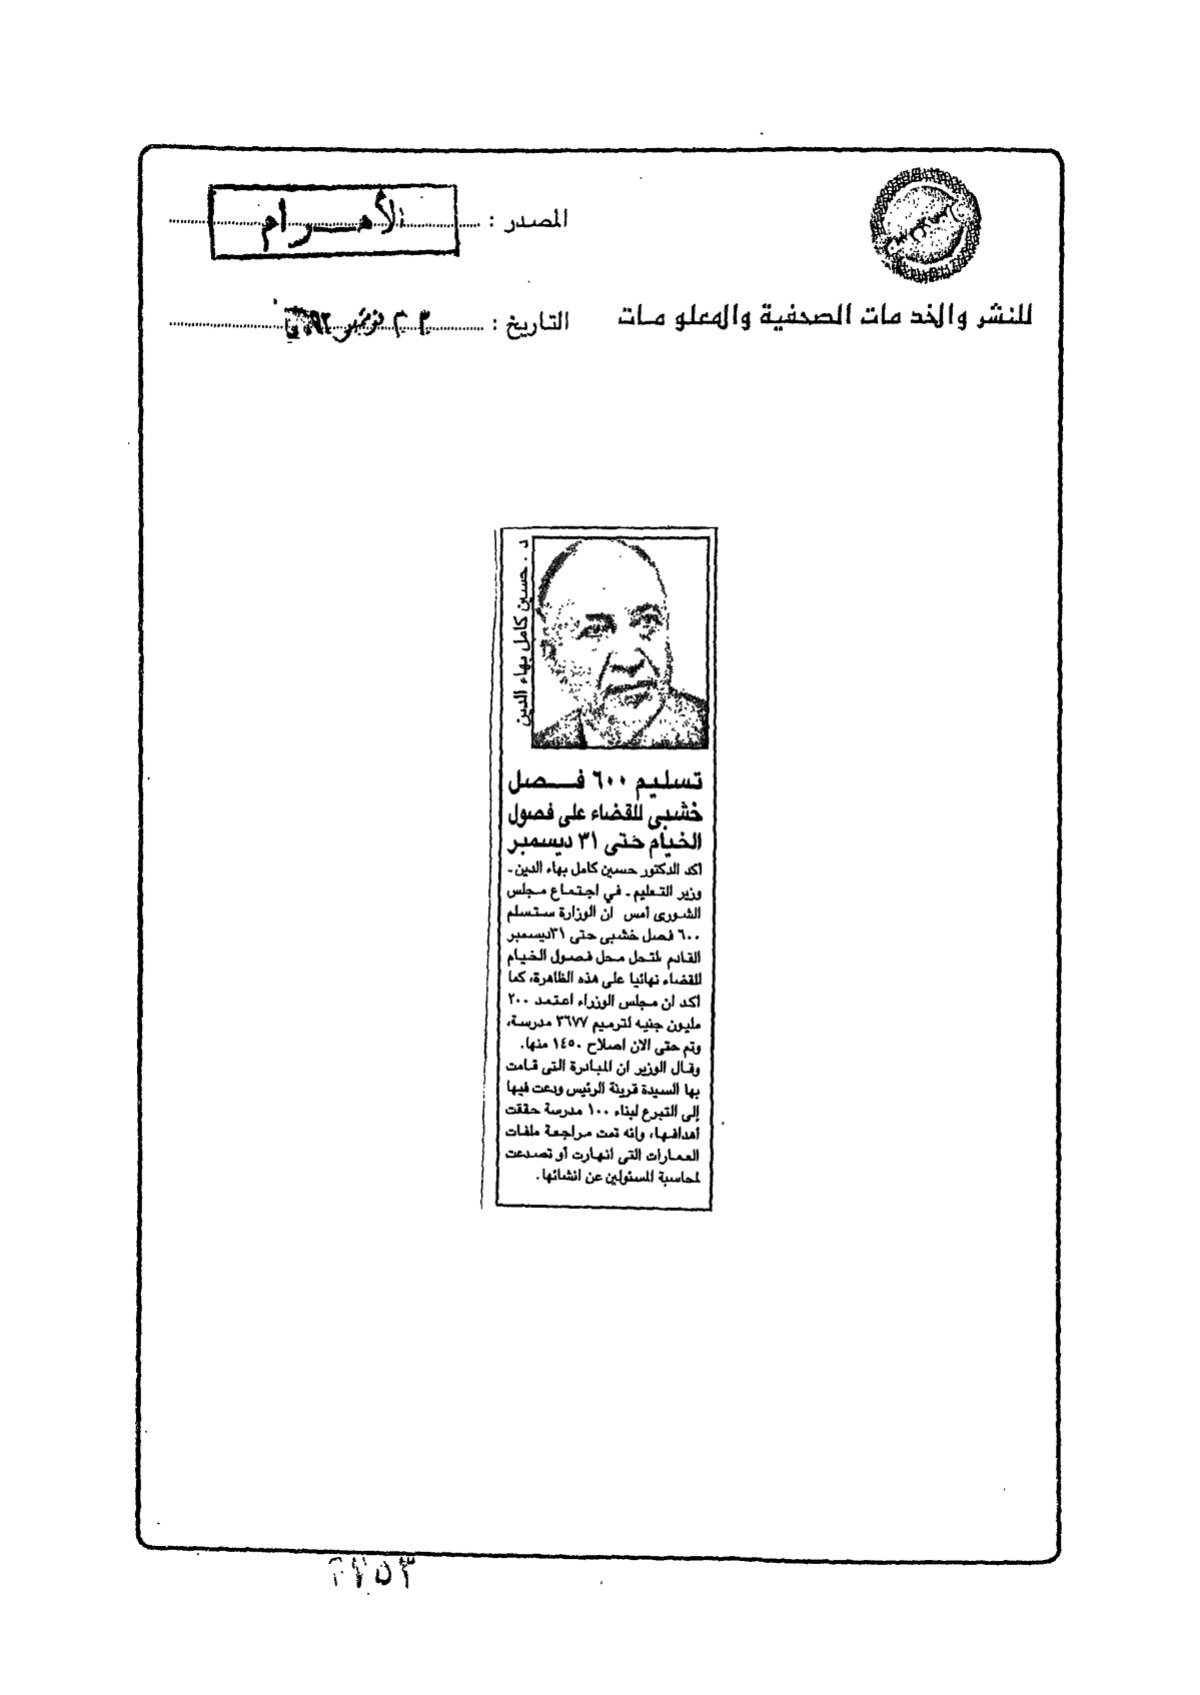 المصدر : الأهرام
للنشر والخدمات الصحفية والمعلومات
التاريخ : نوفمبر
د . حسين كامل بهاء الدين
تسليم ٦٠٠ فصل
خشبى للقضاء على فصول
الخيام حتى ٣١ ديسمبر
أكد الدكتور حسين كامل بهاء الدين ـ
وزير التعليم ـ في اجتماع مجلس
الشورى أمس ان الوزارة ستتسلم
٦٠٠ فصل خشبى حتى ٣١ديسمبر
القادم لتحل محل فصول الخيام
للقضاء نهائيا على هذه الظاهرة، كما
أكد ان مجلس الوزراء اعتمد ٢٠٠
مليون جنيه لترميم ٣٦٧٧ مدرسة،
وتم حتى الان اصلاح ١٤٥٠ منها.
وقال الوزير ان المبادرة التى قامت
بها السيدة قرينة الرئيس ودعت فيها
إلى التبرع لبناء ١٠٠ مدرسة حققت
أهدافها، وإنه تمت مراجعة ملفات
العمارات التى انهارت أو تصدعت
لمحاسبة المسئولين عن انشائها.